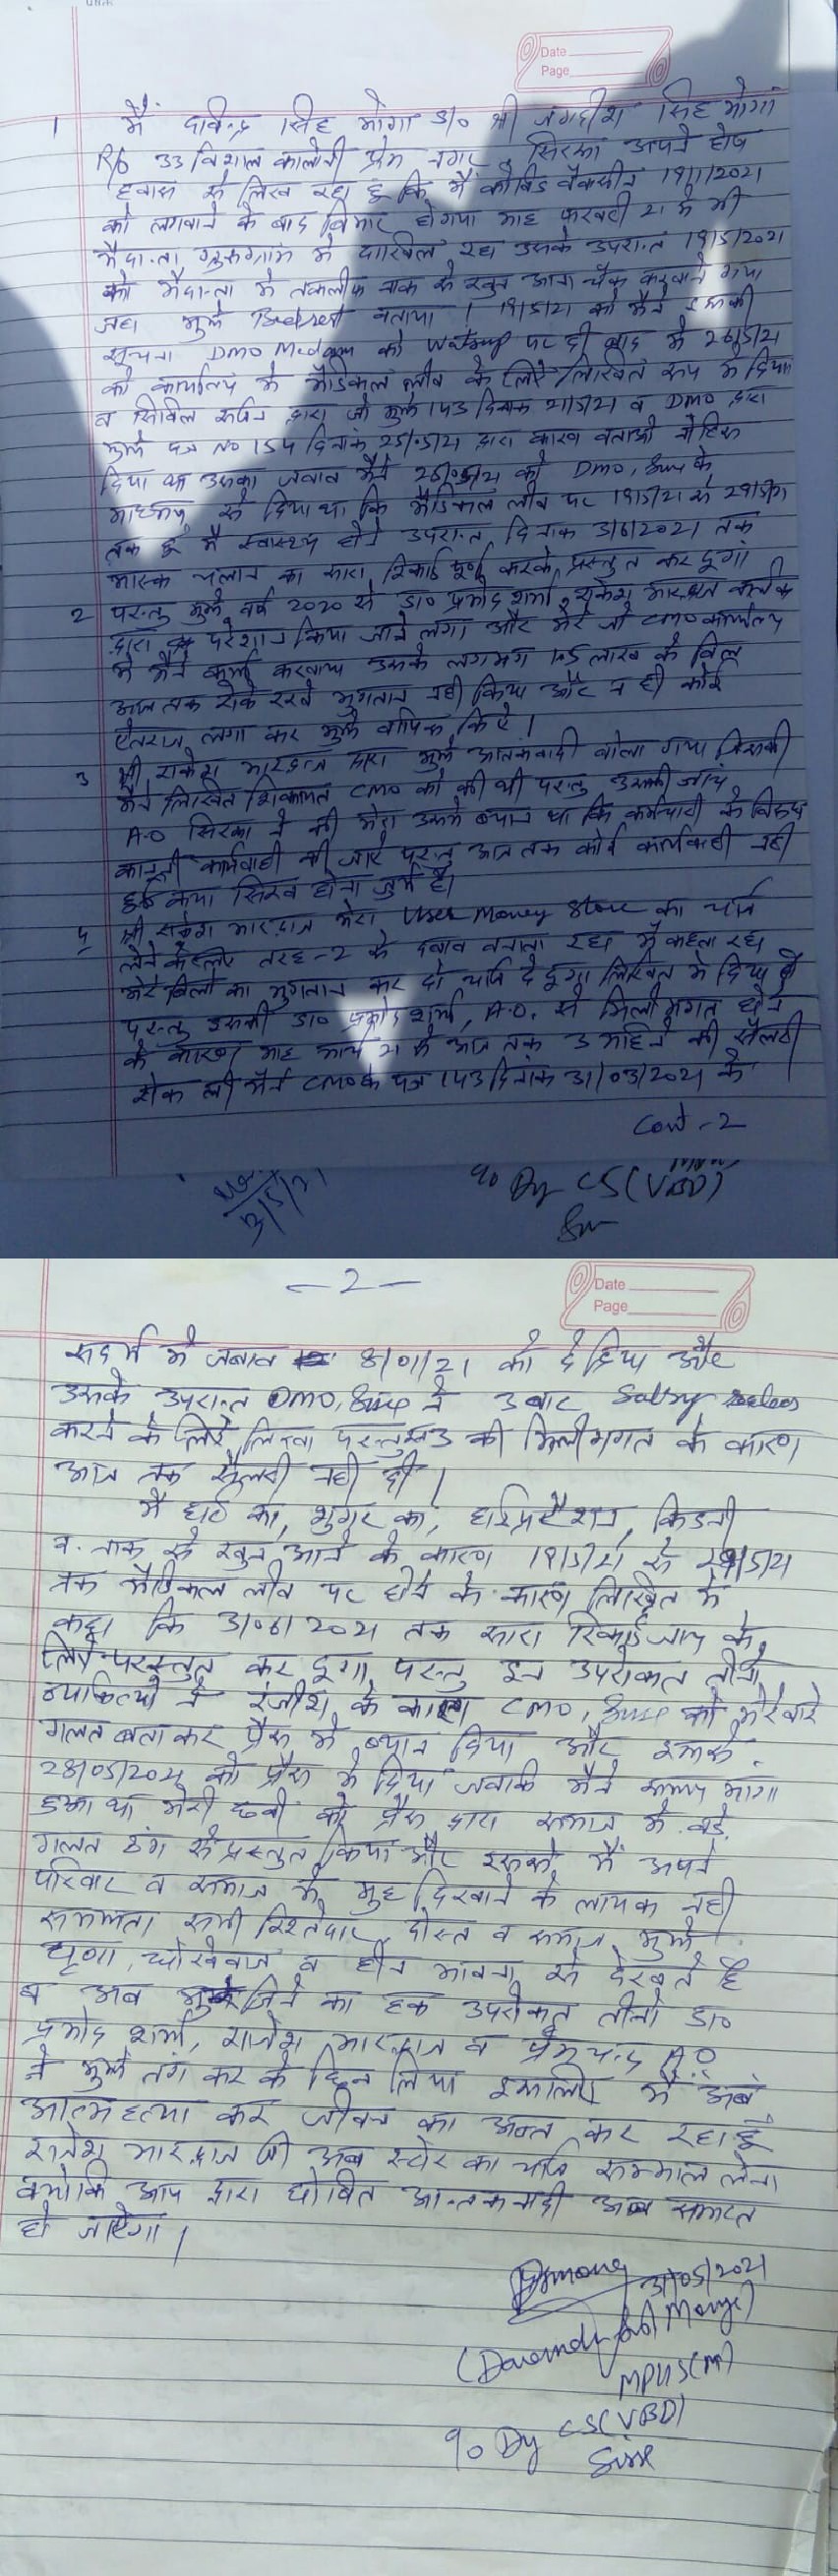 Date
Page
1 मैं दविन्द्र सिंह मोगा S/o श्री जगदीश सिंह मोगा
R/o 33 विशाल कालोनी प्रेम नगर, सिरसा अपने होश
हवास से लिख रहा हूं कि मैं कोविड वैक्सीन 19/1/2021
को लगवाने के बाद बिमार हो गया माह फरवरी 21 में भी
मैदान्ता गुरूग्राम में दाखिल रहा उसके उपरान्त 19/5/2021
को मैदान्ता में तकलीफ नाक से खुन आना चैक करवाने गया
जहा मुझे Bedrest बताया। 19/5/21 को मैने इसकी
सूचना DMO Madam को Watsup पर दी बाद में 26/5/21
को कार्यालय में मैडिकल लीव के लिए लिखित रूप में दिया
व सिविल सर्जन द्वारा जो मुझे 143 दिनांक 21/5/21 व DMO द्वारा
मुझे पत्र No 154 दिनांक 25/05/21 द्वारा कारण बताओ नोटिस
दिया था उसका जवाब मैने 26/05/21 को DMO, के
माध्यम से दिया था कि मैडिकल लीव पर 19/5/21 से 29/5/21
तक हूं मै स्वास्थ्य होने उपरान्त दिनांक 3/6/2021 तक
मास्क चलान का सारा रिकार्ड पूर्ण करके प्रस्तुत कर दूगां
2 परन्तु मुझे वर्ष 2020 से डा० प्रमोद शर्मा, भारद्वाज क्लर्क
द्वारा परेशान किया जाने लगा और मेरे जो CMO कार्यालय
में मैने कार्य करवाया उसके लगभग 1.5 लाख के बिल
आज तक रोके रखे भुगतान नही किया और न ही कोई
ऐतराज लगा कर मुझे वापिस किए।
3 श्री राकेश भारद्वाज द्वारा मुझे आतकवादी बोला गया जिसकी
मैने लिखित शिकायत CMO को की थी परन्तु उसकी जांच
A.O सिरसा ने की मेरा उसमे ब्यान था कि कर्मचारी के विरूध
कानूनी कार्यवाही की जाऐ परन्तु आज तक कोई कार्यवाही नही
हुई क्या सिख होना जुर्म है।
4 श्री राकेश भारद्वाज मेरा User Money Store का चार्ज
लेने के लिए तरह-2 के दबाव बनाता रहा मैं कहता रहा
मेरे बिलो का भुगतान कर दो चार्ज दे दूंगा लिखित में दिया है
परन्तु इसकी डा० प्रमोद शर्मा, A.O. से मिलीभगत होने
के कारण माह मार्च 21 से आज तक 3 महिने की सैलरी
रोक ली मैने CMO के पत्र 143 दिनांक 31/03/2021 के
Cont - 2
% Dy CS (VBD)
- 2 -
Date
Page
सन्दर्भ मे जवाब 8/01/21 को दे दिया और
उसके उपरान्त DMO, ने 3 बार Salary
करने के लिऐ लिखा परन्तु 3 की मिलीभगत के कारण
आज तक सैलरी नही दी।
मै हार्ट का, शुगर का, किडनी
व नाक से खुन आने के कारण 19/5/21 से 29/5/21
तक मैडिकल लीव पर होने के कारण लिखित मे
कहा कि 3/06/2021 तक सारा रिकार्ड जांच के
लिए प्रस्तुत कर दूगा परन्तु इन उपरोक्त तीनो
व्यक्तियो ने रंजीश के कारण CMO, को मेरे बारे
गलत बता कर प्रैस मे ब्यान दिया और इसको
28/05/2021 को प्रैस मे दिया जबकि मैने समय मांगा
हुआ था मेरी छवी को प्रैस द्वारा समाज मे बड़े
गलत ढंग से प्रस्तुत किया और इसको मैं अपने
परिवार व समाज मे मुह दिखाने के लायक नही
समझता सभी रिश्तेदार दोस्त व समाज मुझे
घृणा, धोखेबाज व हीन भावना से देखते है
व अब जिने का हक उपरोक्त तीनो डा०
प्रमोद शर्मा, राकेश भारद्वाज व प्रेमचन्द A.O
ने मुझे तंग कर के छिन लिया इसलिए मै अब
आत्महत्या कर जीवन का अन्त कर रहा हूं
राकेश भारद्वाज जी अब स्टोर का चार्ज सम्भाल लेना
क्योकि आप द्वारा घोषित आन्तकवादी अब समाप्त
हो जाऐगा।
31/05/2021
MPHS(M)
% Dy CS (VBD)